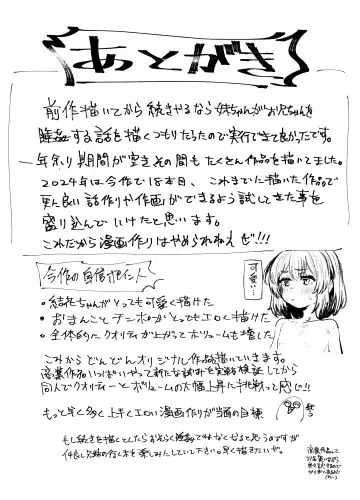 あとがき
前作描いてから続きやるなら妹ちゃんがお兄ちゃんを
睡姦する話を描くつもりだったので実行できて良かったです。
一年余り期間が空きその間もたくさん作品を描いてました。
2024年は今作で18本目、これまでに描いた作品で
更に良い話作りや作画ができるよう試してきた事を
盛り込んでいけたと思います。
これだから漫画作りはやめられねえぜ!!!
今作の自信ポイント
可愛い…
・ちゃんがとっても可愛く描けた
・おまんことチーポがとってもエロく描けた
・全体的なクオリティが上がってボリュームも増した
これからどんどんオリジナル作品描いていきます。
商業作品いっぱいやって新たな試みを実験検証してから
同人でクオリティーとボリュームの大幅上昇に挑戦って感じ!!
もっと早く多く上手くエロい漫画作りが当面の目標
もし続きを描くとしたらおそらく睡姦ではなくなると思うのですが
仲良し兄妹の行く末を楽しみにしていて下さい。早く描きたいぜ。